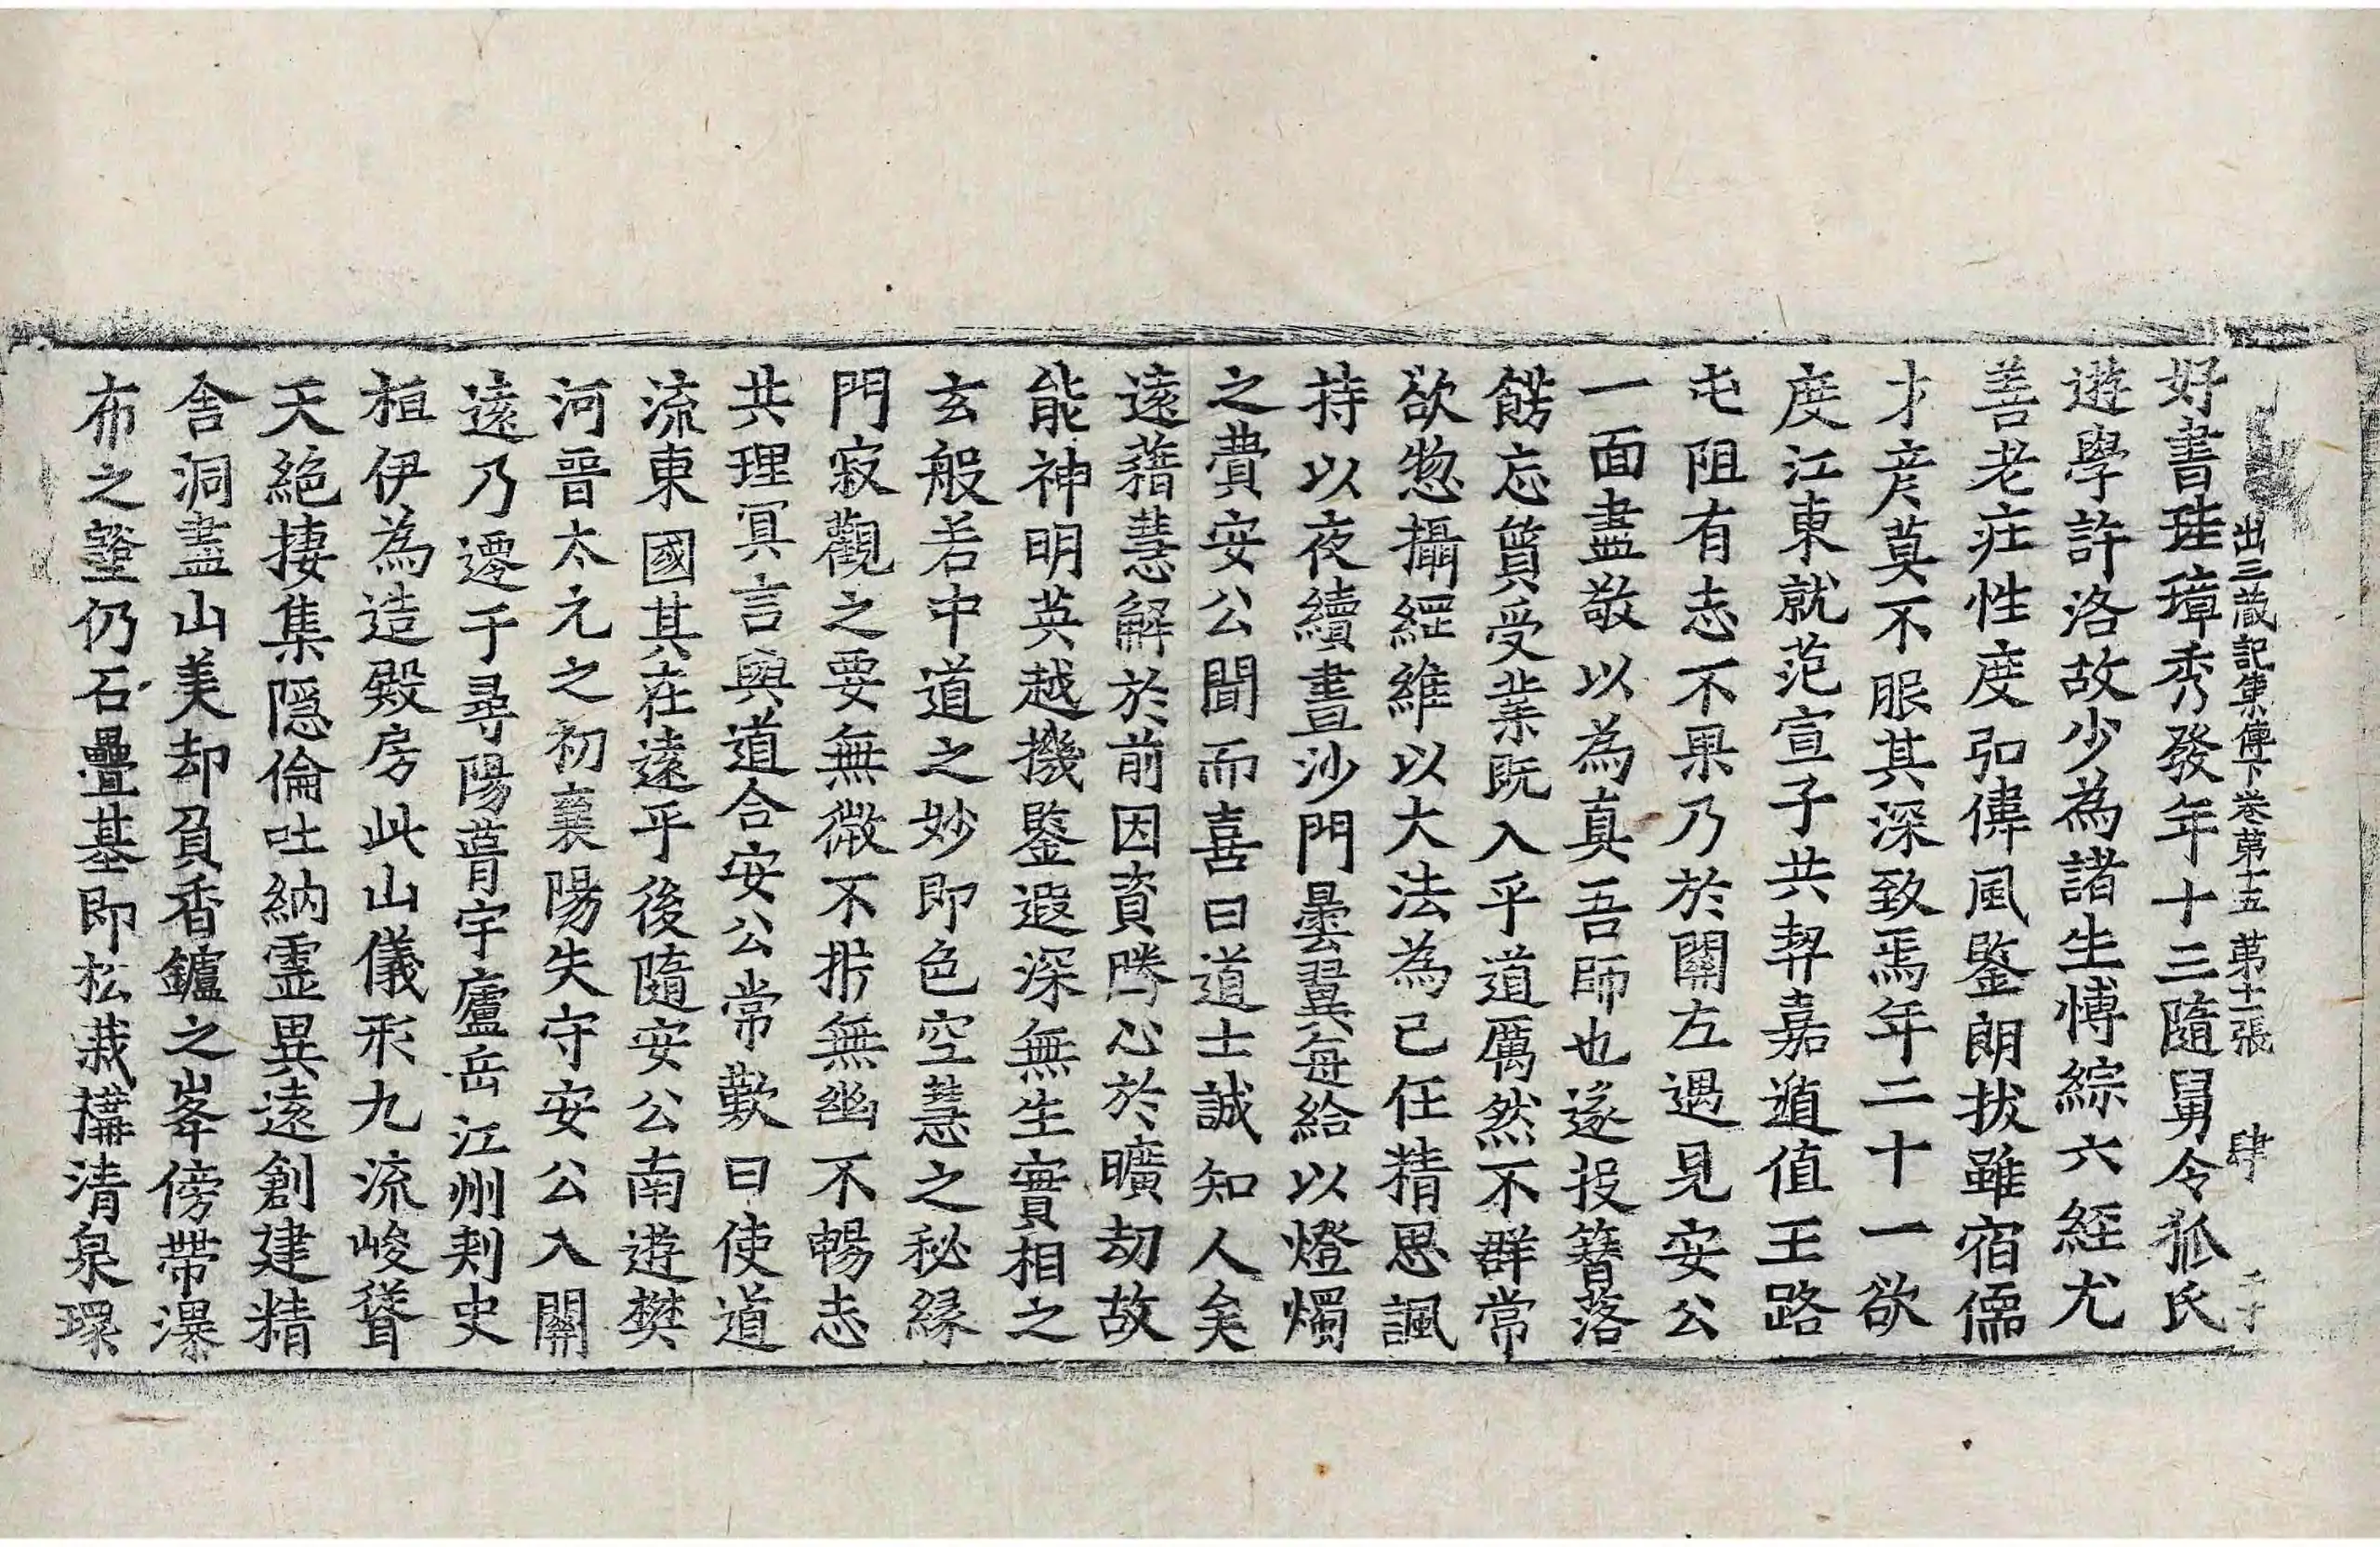 出三藏記集傳下卷第十五 第十二張 肆
好書珪璋秀發年十三隨舅令狐氏
遊學許洛故少為諸生博綜六經尤
善老莊性度弘偉風鑒朗拔雖宿儒
才彦莫不服其深致焉年二十一欲
度江東就范宣子共契嘉遁值王路
屯阻有志不果乃於關左遇見安公
一面盡敬以為真吾師也遂投簪落
髮忘質受業既入乎道厲然不群常
欲惣攝綱維以大法為己任精思諷
持以夜續晝沙門曇翼每給以燈燭
之費安公聞而喜曰道士誠知人矣
遠藉慧解於前因資勝心於曠劫故
能神明英越機鑒遐深無生實相之
玄般若中道之妙即色空慧之秘緣
門寂觀之要無微不析無幽不暢志
共理冥言與道合安公常歎曰使道
流東國其在遠乎後隨安公南遊樊
河晉太元之初襄陽失守安公入關
遠乃遷于尋陽葺宇廬岳江州刺史
桓伊為造殿房此山儀形九流峻聳
天絕棲集隱倫吐納靈異遠創建精
舍洞盡山美却負香鑪之峯傍帶瀑
布之壑仍石疊基即松栽構清泉環